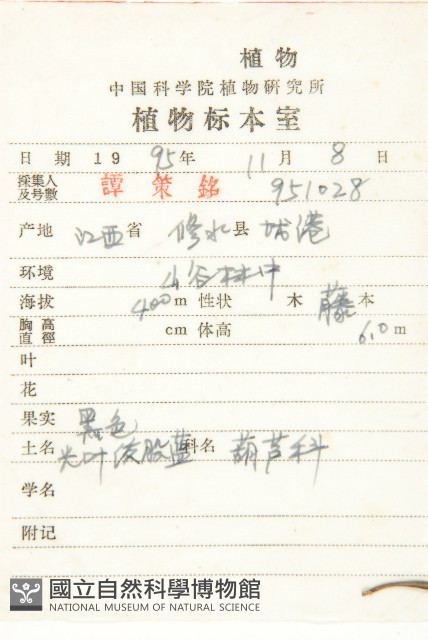 植物
中国科学院植物研究所
植物标本室
日期 19 95年 11月 8日
採集人及号數 譚策銘 951028
产地 江西省 修水县 港
环境 山谷林中
海拔 400m 性状 木 藤本
胸高直徑 cm 体高 6.0m
叶
花
果实 黑色
土名 光叶绞股蓝 科名 葫芦科
学名
附记
國立自然科學博物館
NATIONAL MUSEUM OF NATURAL SCIENCE